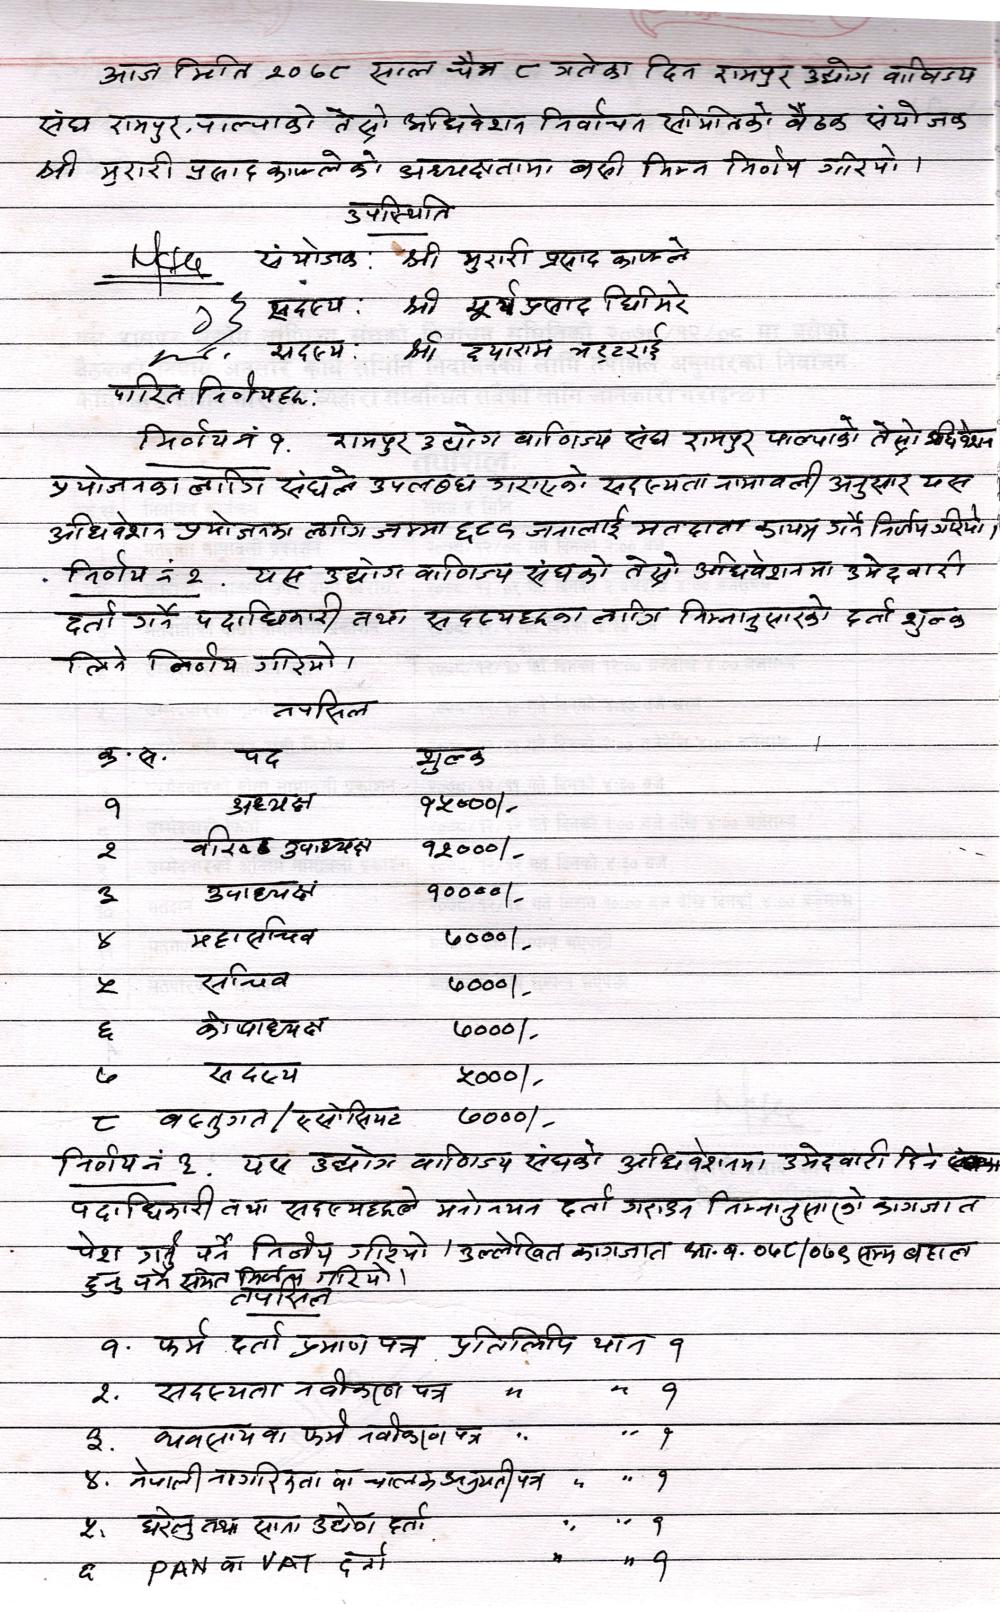 आज मिति २०७८ साल चैत्र ८ गतेका दिन रामपुर उद्योग वाणिज्य
संघ रामपुर, पाल्पाको तेस्रो अधिवेशन निर्वाचन समितिको बैठक संयोजक
श्री मुरारी प्रसाद काफ्लेको अध्यक्षतामा बसी निम्न निर्णय गरियो ।
उपस्थिति
संयोजक: श्री मुरारी प्रसाद काफ्ले
सदस्य: श्री सूर्य प्रसाद घिमिरे
सदस्य: श्री दयाराम भट्टराई
पारित निर्णयहरू:
निर्णय नं १. रामपुर उद्योग वाणिज्य संघ रामपुर पाल्पाको तेस्रो अधिवेशन
प्रयोजनका लागि संघले उपलब्ध गराएको सदस्यता नामावली अनुसार यस
अधिवेशन प्रयोजनका लागि जम्मा ६८९ जनालाई मतदाता कायम गर्ने निर्णय गरियो ।
निर्णय नं २. यस उद्योग वाणिज्य संघको तेस्रो अधिवेशनमा उमेदवारी
दर्ता गर्ने पदाधिकारी तथा सदस्यहरूका लागि निम्नानुसारको दर्ता शुल्क
लिने निर्णय गरियो ।
तपसिल
क्र.स. पद शुल्क
१ अध्यक्ष १५०००/-
२ वरिष्ठ उपाध्यक्ष १२०००/-
३ उपाध्यक्ष १००००/-
४ महासचिव ७०००/-
५ सचिव ७०००/-
६ कोषाध्यक्ष ७०००/-
७ सदस्य ५०००/-
८ वस्तुगत/एसोसियट ७०००/-
निर्णय नं ३. यस उद्योग वाणिज्य संघको अधिवेशनमा उमेदवारी दिने
पदाधिकारी तथा सदस्यहरूले मनोनयन दर्ता गराउन निम्नानुसारको कागजात
पेश गर्नु पर्ने निर्णय गरियो । उल्लेखित कागजात आ.व. ०७८/०७९ सम्म बहाल
हुनु पर्ने समेत निर्णय गरियो ।
तपसिल
१. फर्म दर्ता प्रमाण पत्र प्रतिलिपि थान १
२. सदस्यता नवीकरण पत्र " " १
३. व्यवसाय वा फर्म नवीकरण पत्र " " १
४. नेपाली नागरिकता वा चालक अनुमती पत्र " " १
५. घरेलु तथा साना उद्योग दर्ता " " १
६ PAN वा VAT दर्ता " " १